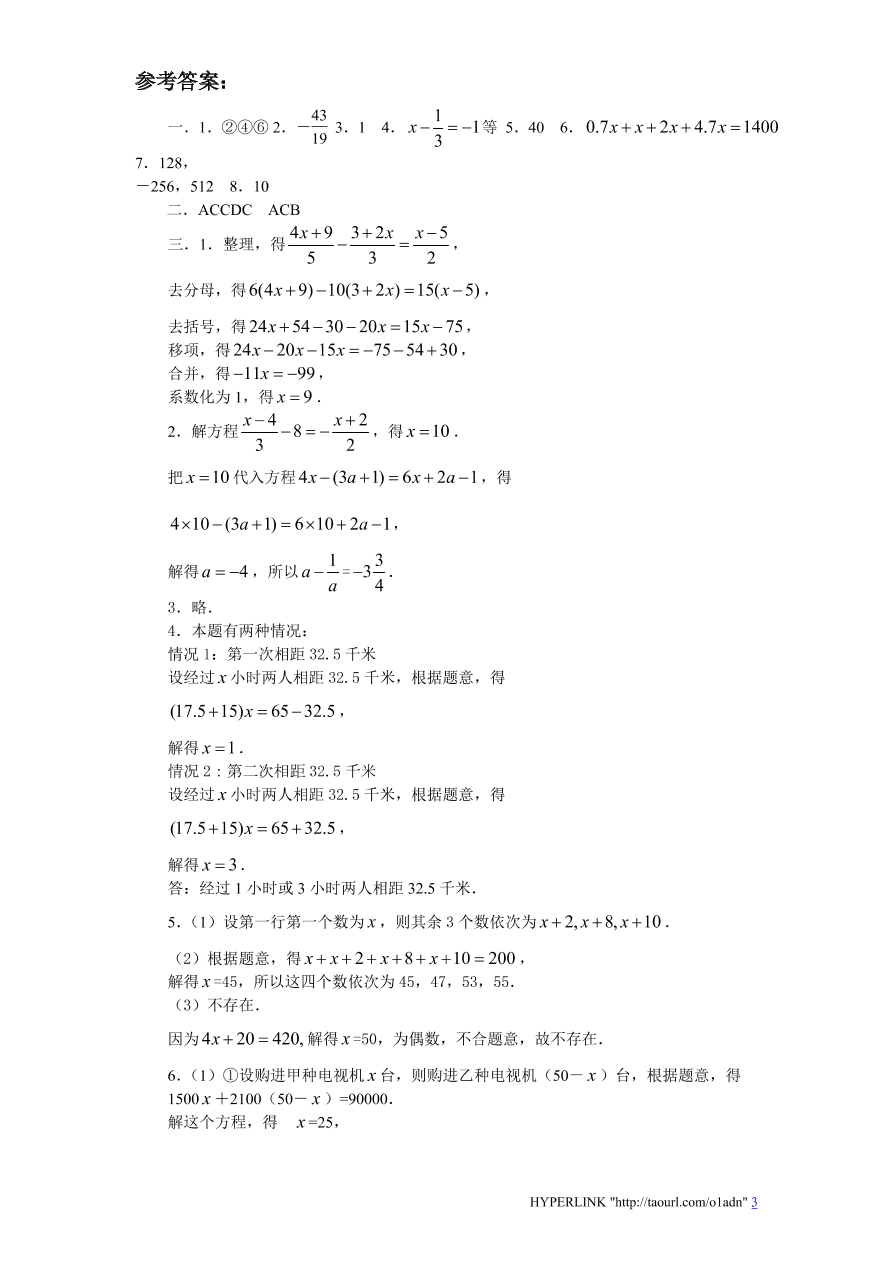 参考答案：
一．1．②④⑥ 2．－43/19 3．1 4．x－1/3＝－1等 5．40 6．0.7x＋x＋2x＋4.7x＝1400
7．128，
－256，512 8．10
二．ACCDC ACB
三．1．整理，得(4x＋9)/5－(3＋2x)/3＝(x－5)/2，
去分母，得6(4x＋9)－10(3＋2x)＝15(x－5)，
去括号，得24x＋54－30－20x＝15x－75，
移项，得24x－20x－15x＝－75－54＋30，
合并，得－11x＝－99，
系数化为 1，得x＝9．
2．解方程(x－4)/3－8＝－(x＋2)/2，得x＝10．
把x＝10代入方程4x－(3a＋1)＝6x＋2a－1，得
4×10－(3a＋1)＝6×10＋2a－1，
解得a＝－4，所以a－1/a＝－3 3/4．
3．略．
4．本题有两种情况：
情况 1：第一次相距 32.5 千米
设经过x小时两人相距 32.5 千米，根据题意，得
(17.5＋15)x＝65－32.5，
解得x＝1．
情况 2：第二次相距 32.5 千米
设经过x小时两人相距 32.5 千米，根据题意，得
(17.5＋15)x＝65＋32.5，
解得x＝3．
答：经过 1 小时或 3 小时两人相距 32.5 千米．
5．（1）设第一行第一个数为x，则其余 3 个数依次为x＋2, x＋8, x＋10．
（2）根据题意，得x＋x＋2＋x＋8＋x＋10＝200，
解得x=45，所以这四个数依次为 45，47，53，55．
（3）不存在．
因为4x＋20＝420, 解得x=50，为偶数，不合题意，故不存在．
6．（1）①设购进甲种电视机x台，则购进乙种电视机（50－x）台，根据题意，得
1500x＋2100（50－x）=90000．
解这个方程，得 x=25，
HYPERLINK "http://taourl.com/o1adn" 3